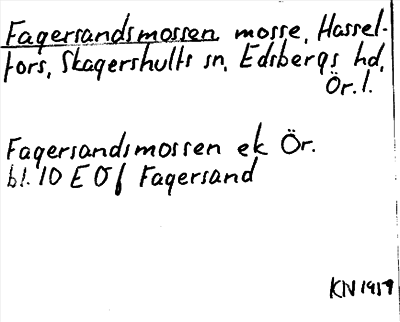 Fagersandsmossen mosse, Hassel-
fors, Skagershults sn, Edsbergs hd,
Ör. l.
Fagersandsmossen ek Ör.
bl. 10 E Öf Fagersand
KN 1919